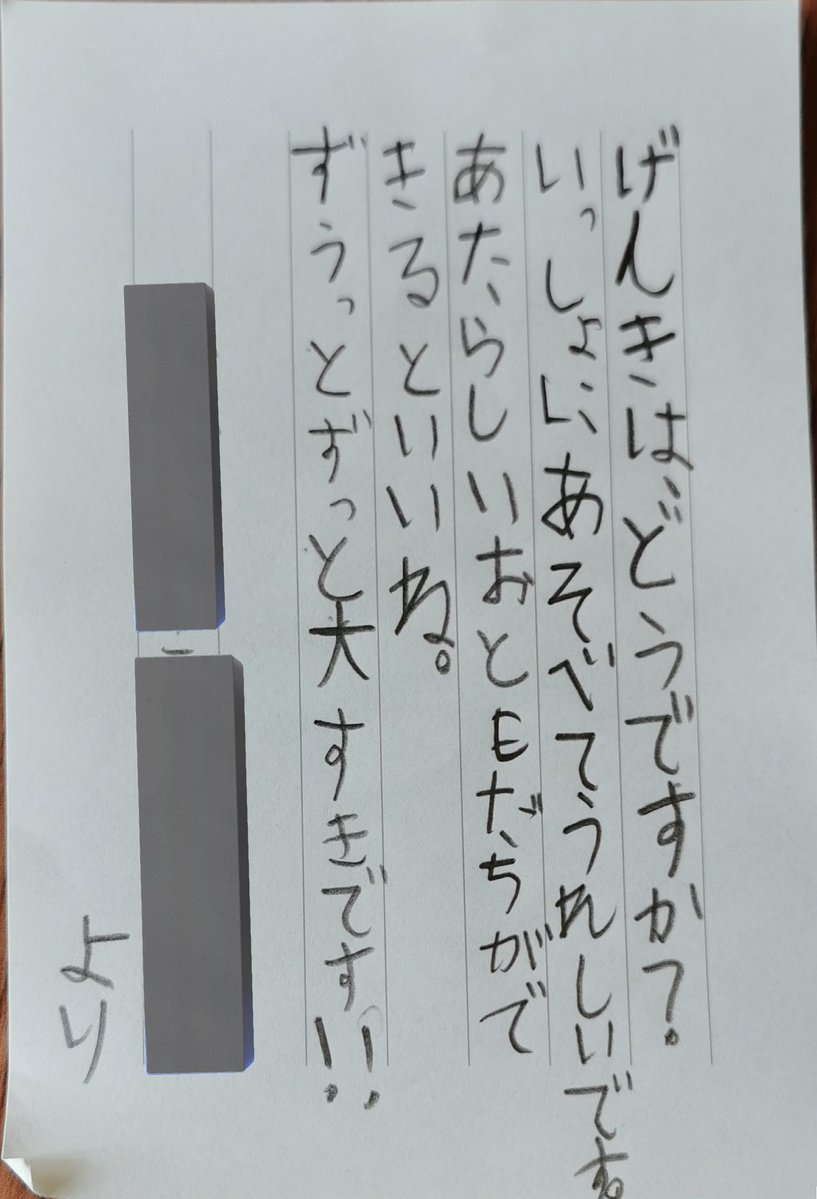 げんきは、どうですか？
いっしょにあそべてうれしいです。
あたらしいおともだちがで
きるといいね。
ずうっとずっと大すきです!!
より